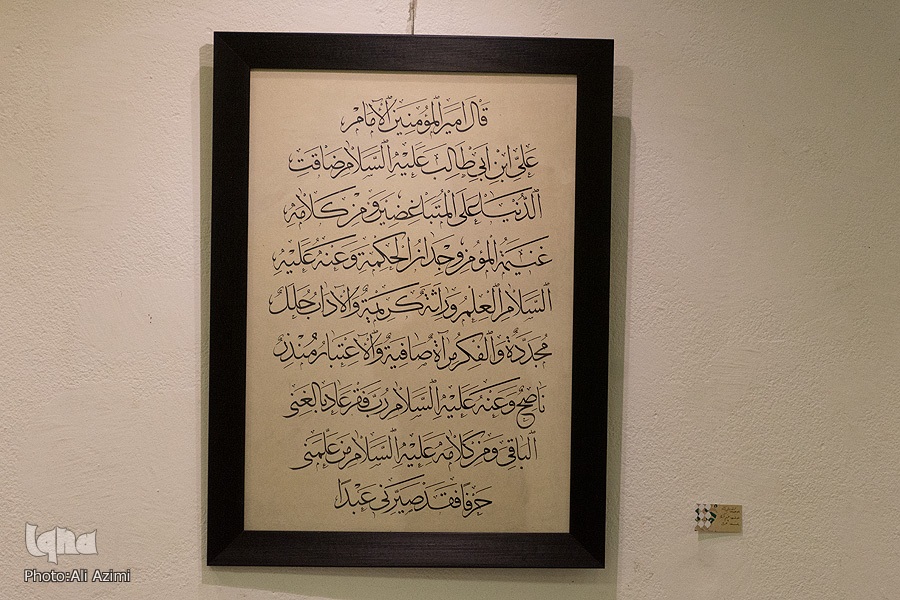 قال امیر المؤمنین الامام
علی ابن ابی طالب علیه السلام ضاقت
الدنیا علی المتباغضین و من کلامه
غنیمة المؤمن وجدان الحکمة و عنه علیه
السلام العلم وراثة کریمة و الآداب حلل
مجددة و الفکر مرآة صافیة و الاعتبار منذر
ناصح و عنه علیه السلام رب فقر عاد بالغنی
الباقی و من کلامه علیه السلام من علمنی
حرفا فقد صیرنی عبدا
Iqna
Photo:Ali Azimi